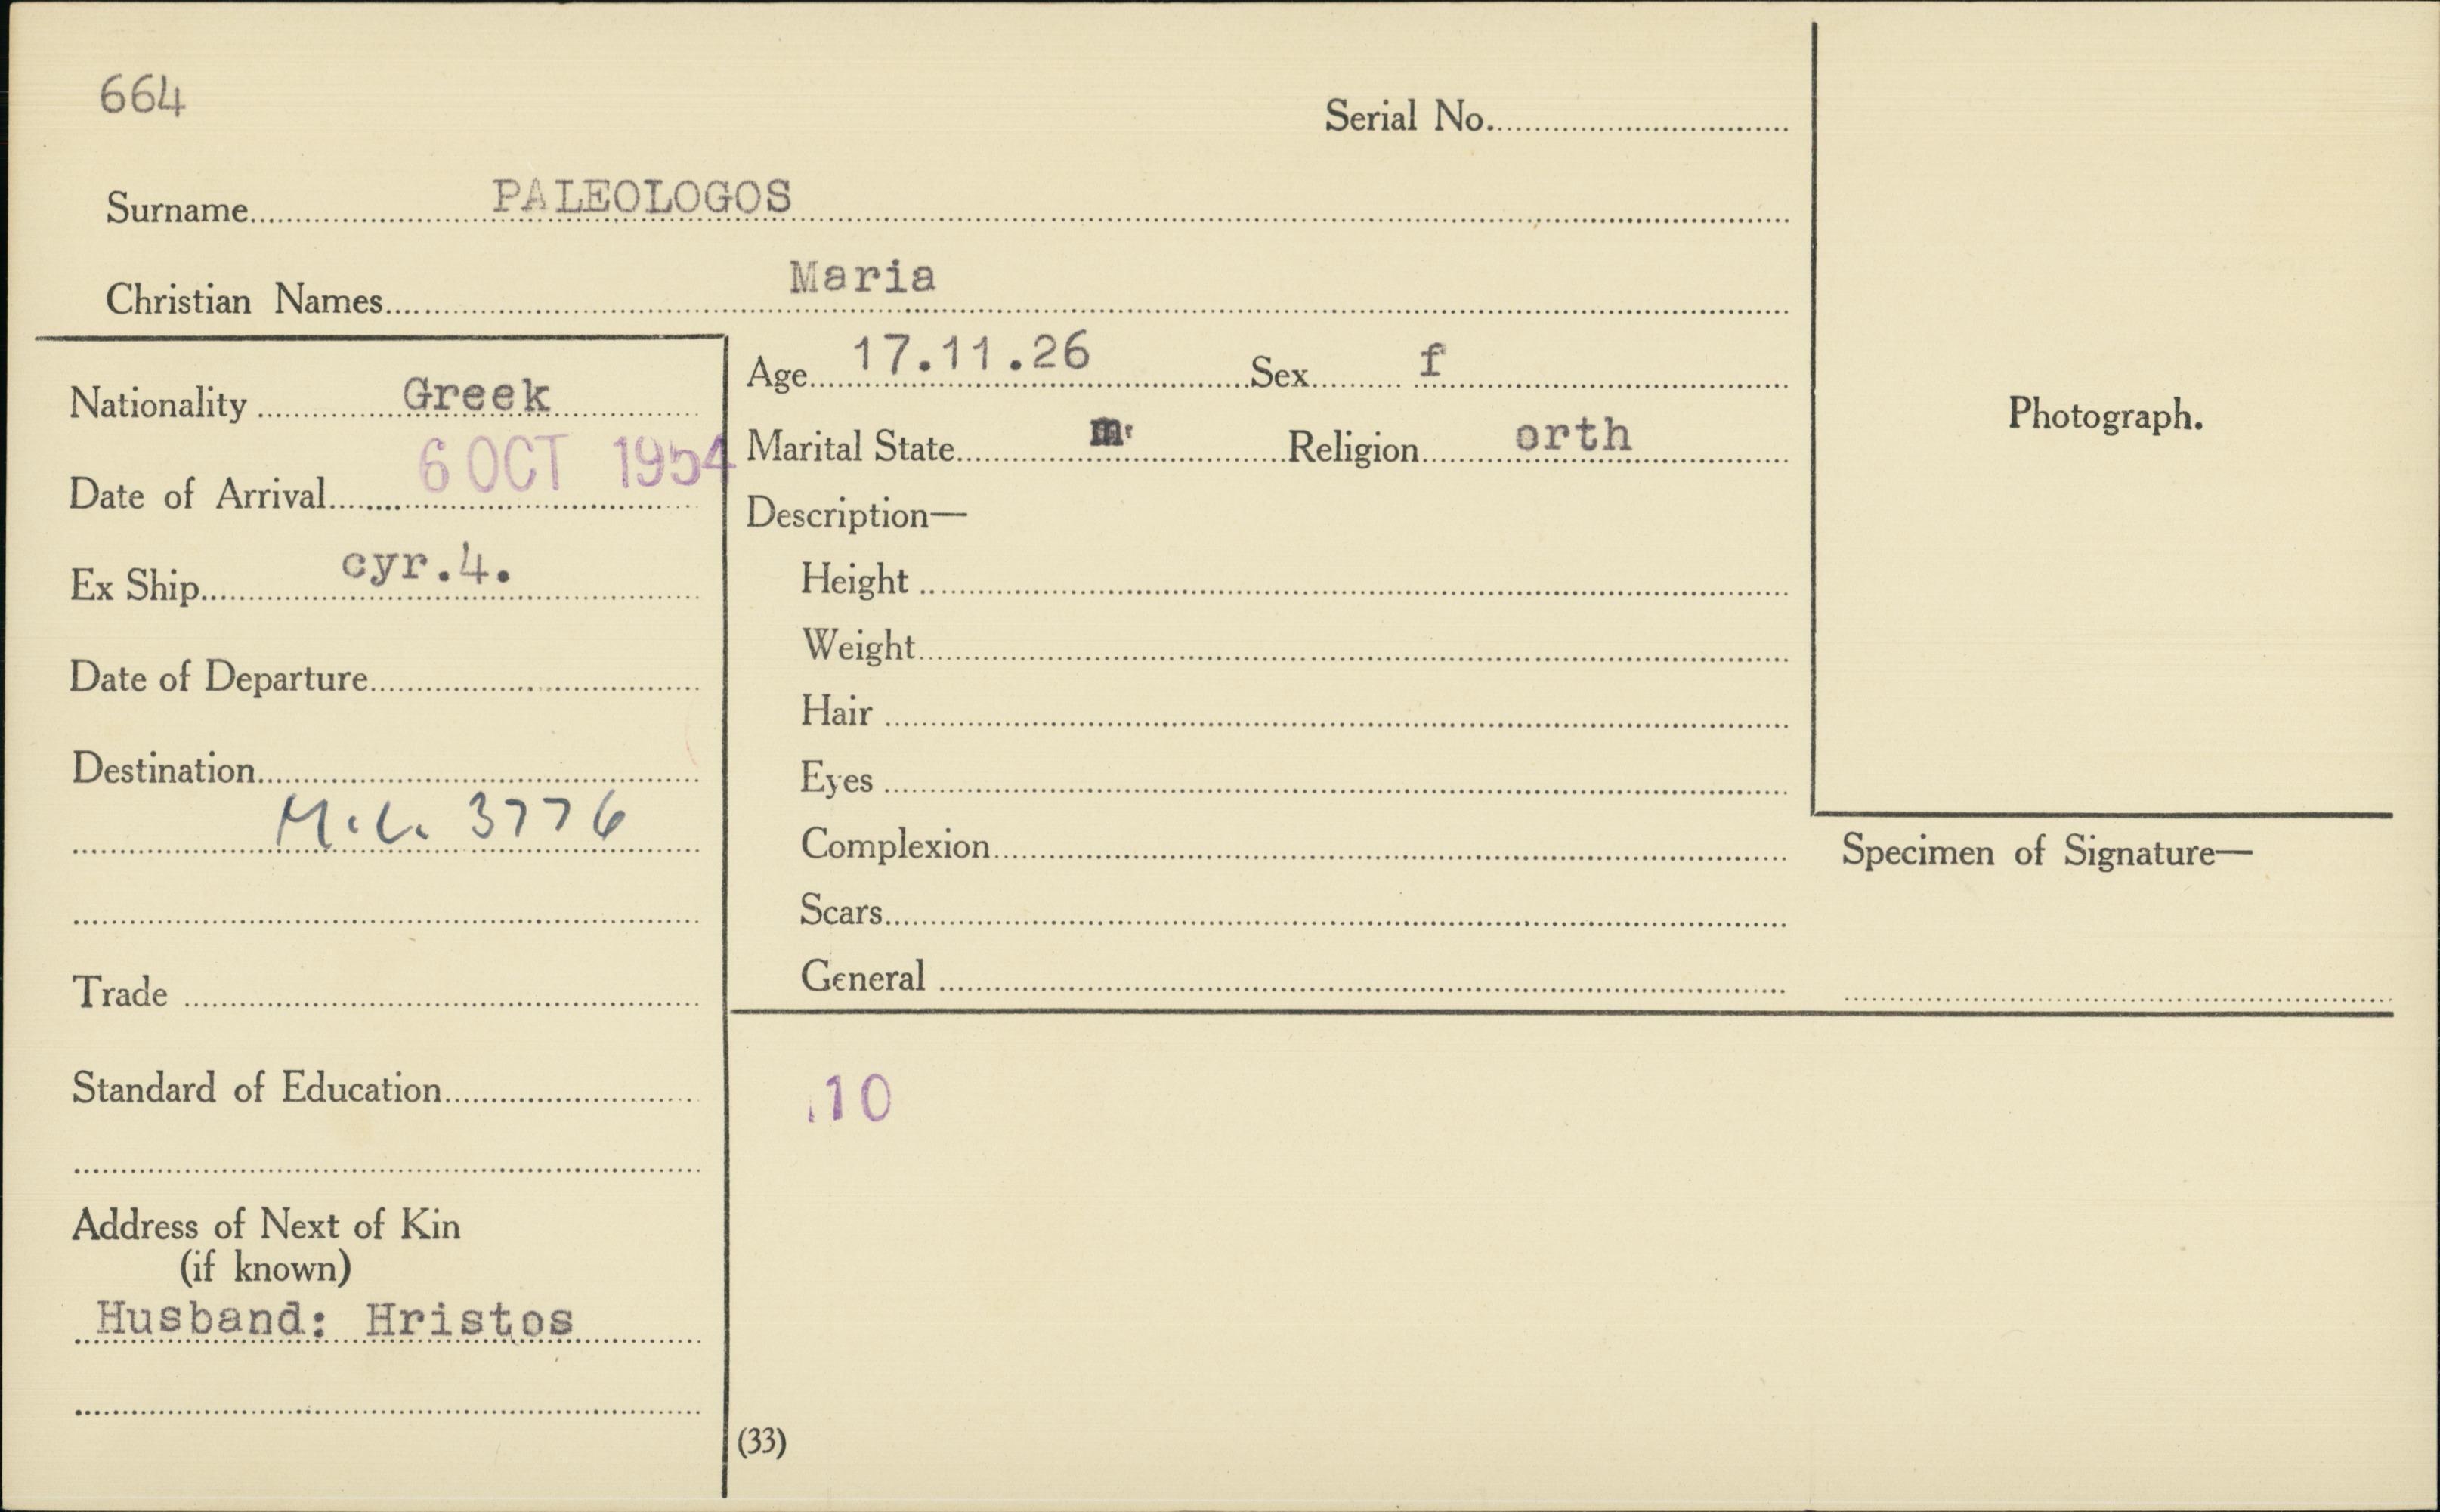 664
Serial No.
Surname PALEOLOGOS
Christian Names Maria
Nationality Greek
Date of Arrival 6 OCT 1954
Ex Ship cyr.4.
Date of Departure
Destination
M.L. 3776
Trade
Standard of Education
Address of Next of Kin
(if known)
Husband: Hristos
Age 17.11.26 Sex f
Marital State m. Religion orth
Description—
Height
Weight
Hair
Eyes
Complexion
Scars
General
10
(33)
Photograph.
Specimen of Signature—